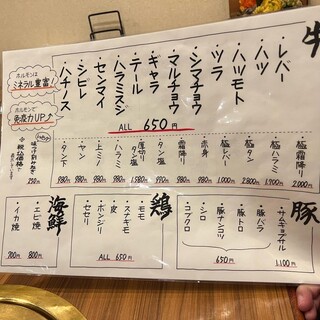 牛
・レバー
・ハツ
・ハツモト
・ツラ
・シマチョウ
・マルチョウ
・キャラ
・テール
・ハラミスジ
・センマイ
・シビレ
・ハチノス
ALL 650円
ホルモンは
ミネラル豊富！
ホルモンで
免疫力UP！
・極霜降り 2,000円
・極ハラミ 1,900円
・極タン 2,800円
・極レバー 980円
・赤身 980円
・霜降り 980円
・タン塩 980円
・厚切りタン塩 1,500円
・ハラミ 980円
・上ミノ 980円
・ヤン 980円
・タン下 980円
250円
豚
・サムギョプサル 1,100円
・豚バラ
・豚トロ
・豚ナンコツ
・シロ
・コブクロ
650円
鶏
・モモ
・スナギモ
・皮
・ボンジリ
・セセリ
ALL 650円
海鮮
・エビ焼 800円
・イカ焼 700円